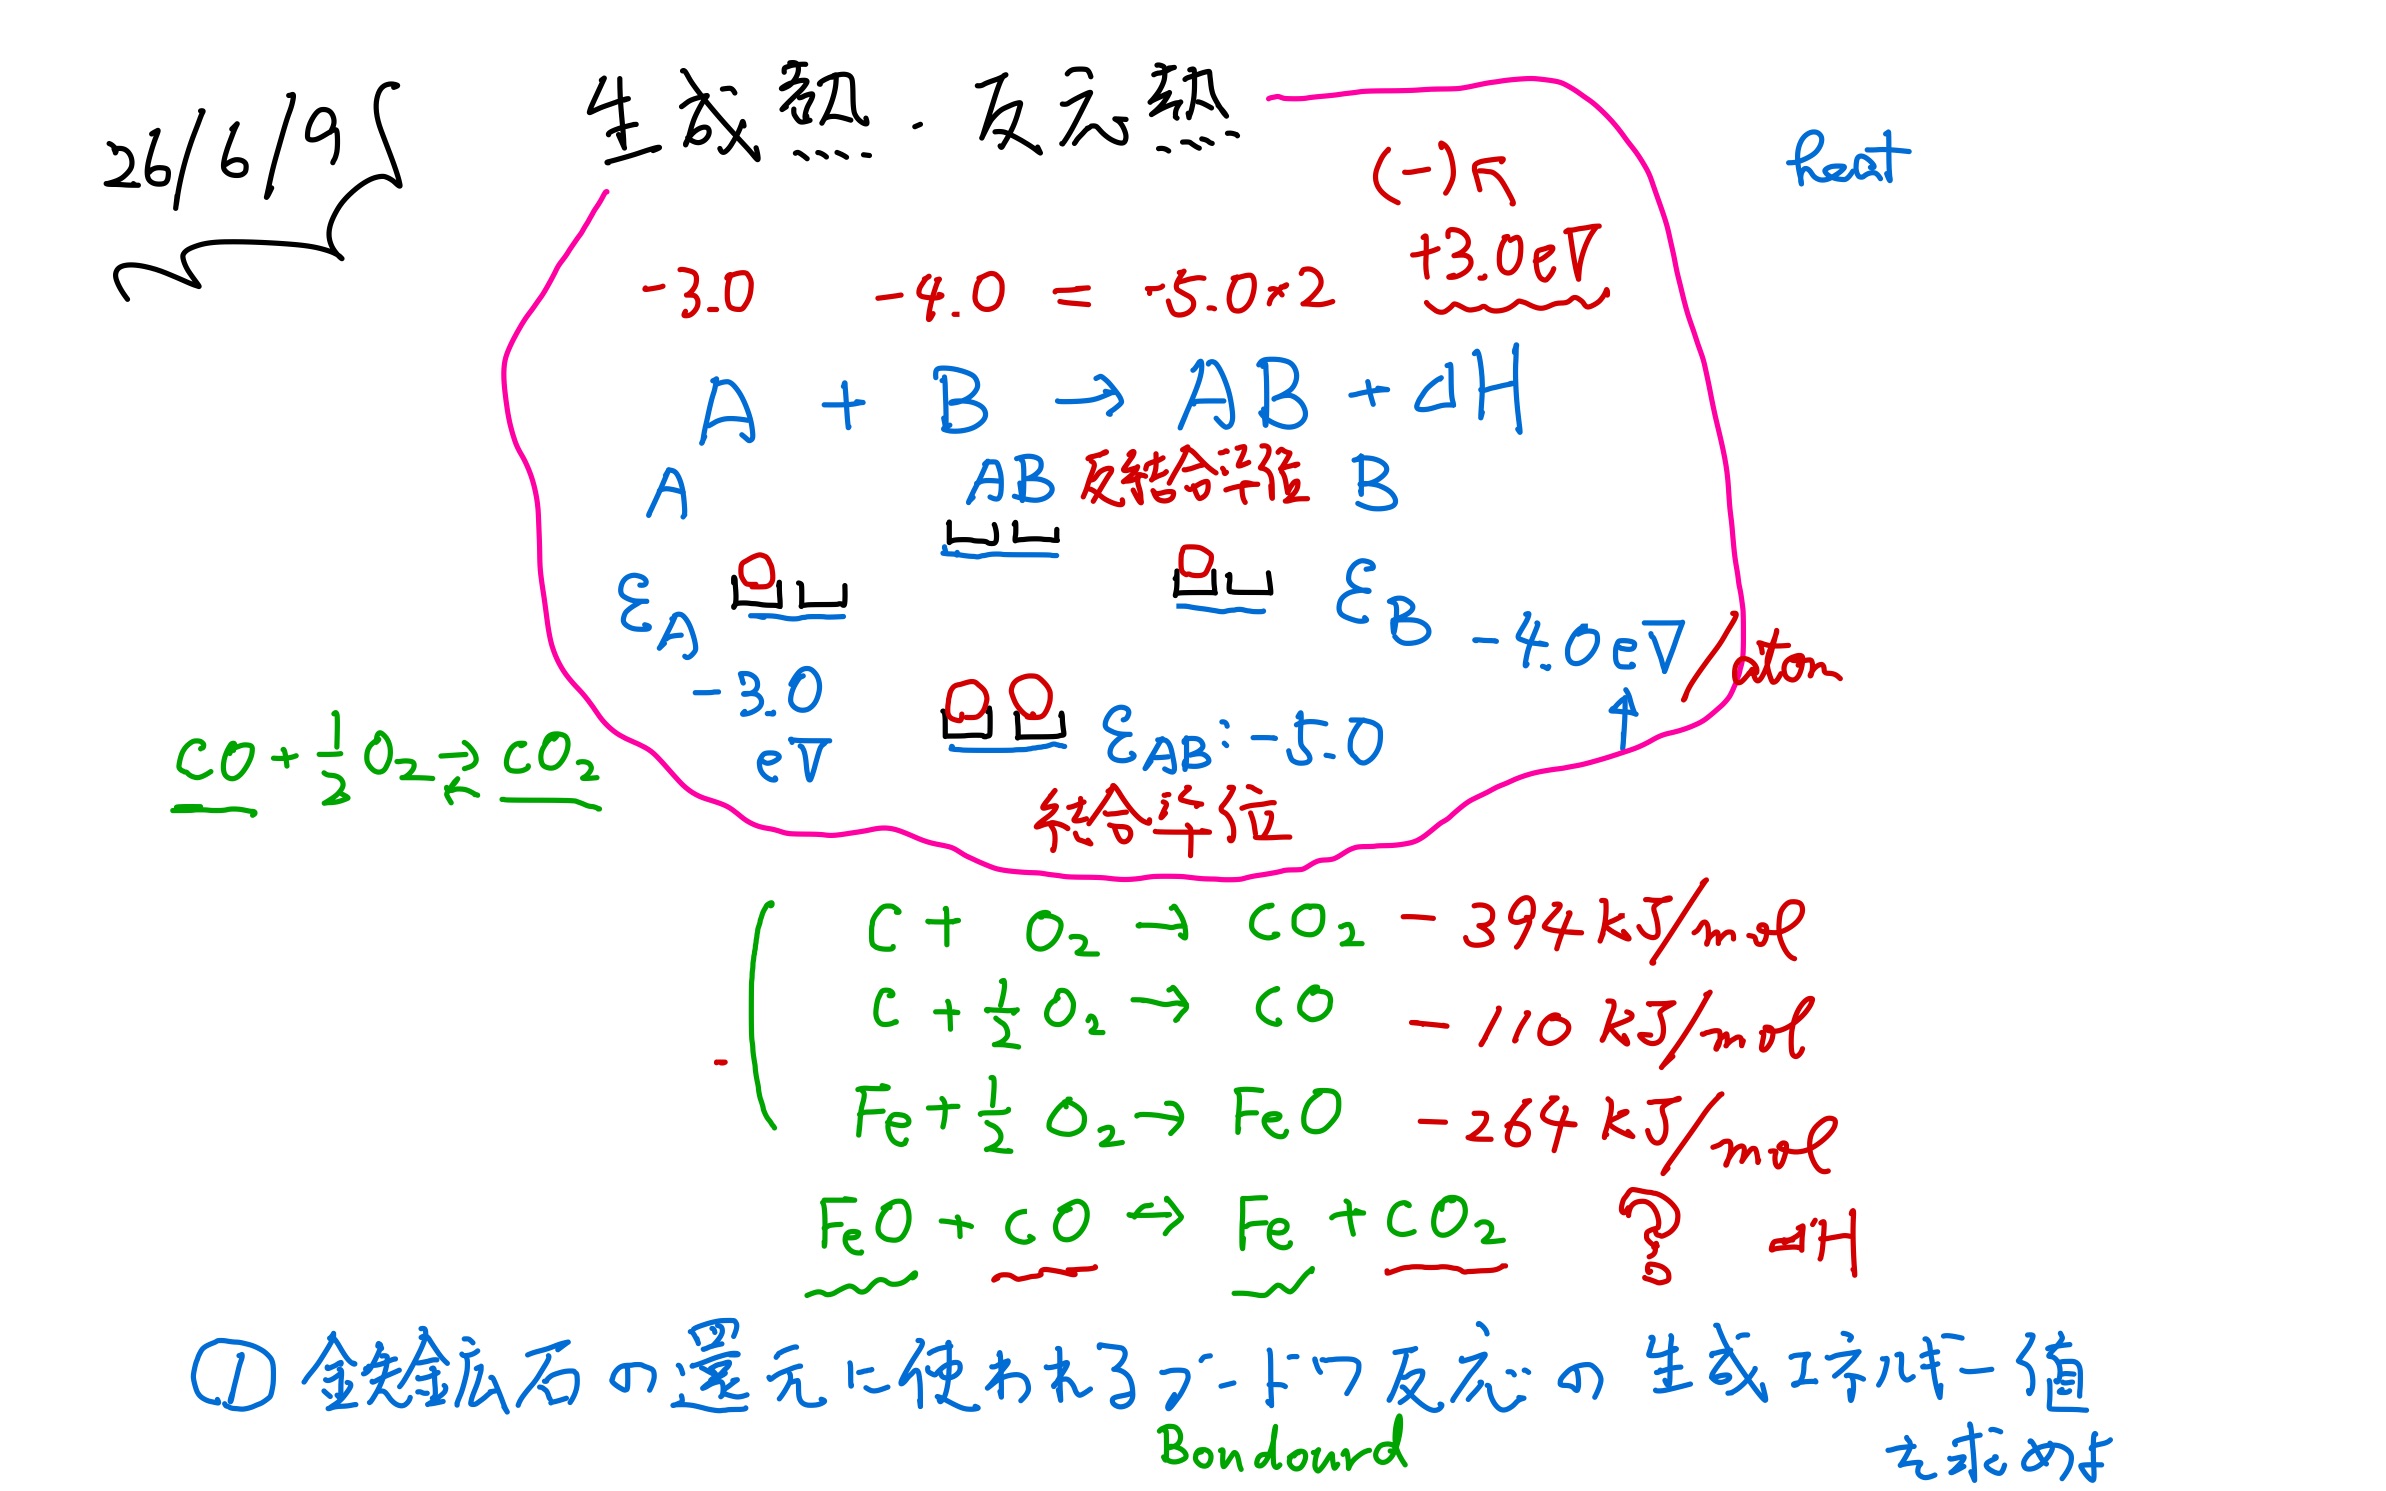 26/6/9
生成熱・反応熱
Rest
(-)π
+3.0eV
-3.0 -4.0 = -5.0×2
A + B → AB + ΔH
A AB 反結合準位 B
εA εB -4.0eV/atom
-3.0
eV
εAB: -5.0
結合準位
CO + 1/2 O2 ⇄ CO2
C + O2 → CO2 -394kJ/mol
C + 1/2 O2 → CO -110kJ/mol
Fe + 1/2 O2 → FeO -264kJ/mol
FeO + CO → Fe + CO2 ? ΔH
① 鉄鉱石の還元に使われる 反応の生成エネルギー値
を求めよ
Boudouard